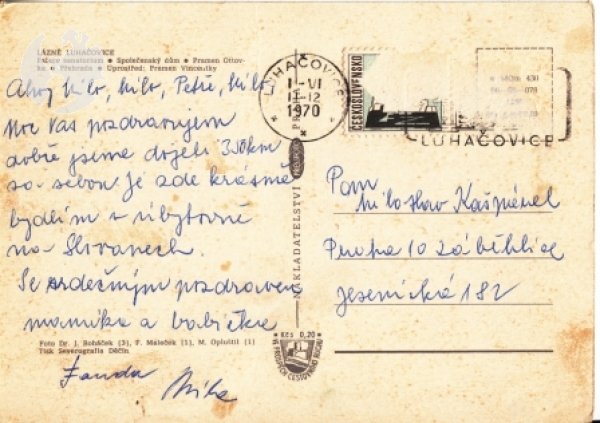 LÁZNĚ LUHAČOVICE
Palace sanatorium • Společenský dům • Pramen Ottov-
ka • Přehrada • Uprostřed: Pramen Vincentky
Ahoj Milo, Milo, Petře, Milo,
Moc Vas pozdravujem
dobře jseme dojeli 350km
za sebou je zde krásně
bydlím v ubytovně
na Slovanech.
Se srdečným pozdravem
mamka a babička
Foto Dr. J. Boháček (3), F. Maleček (1), M. Opluštil (1)
Tisk Severografia Děčín
Fanda
NAKLADATELSTVÍ PRESSFOTO PRAHA
Kčs 0,20
LUHAČOVICE
1-VI
-12
1970
ČESKOSLOVENSKO
LUHAČOVICE
Pan
Miloslav Kašpárek
Praha 10 Záběhlice
Jesenická 182